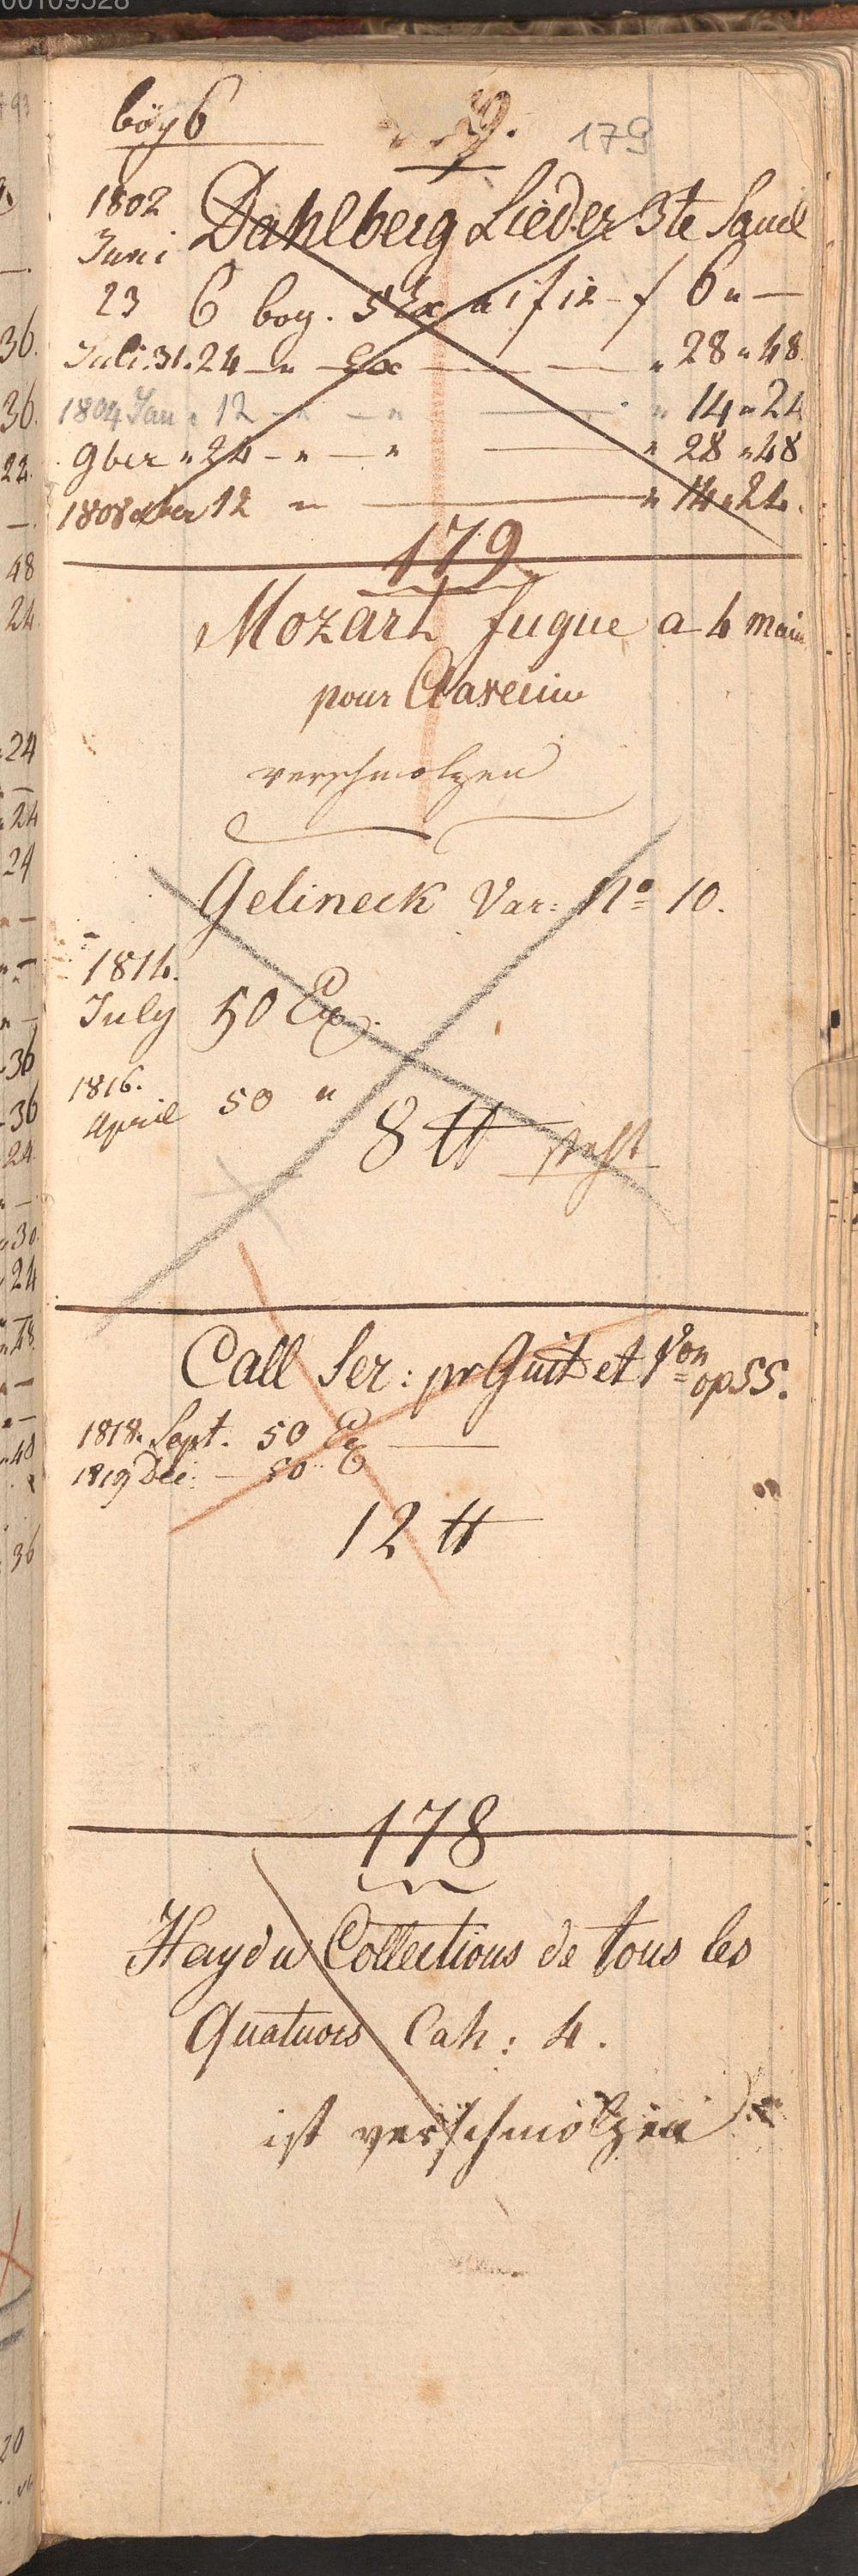 00109528
bög 6
9.
179
1802 Dahlberg Lieder 3te Saml
Juni
23 6 bog. 5 Ex a 1 f 12 - f 6 " —
Juli. 31. 24 — " — Ex — — " 28 " 48
1804 Jan. 12 — " — " — " 14 " 24
9ber " 24 — " — " — " 28 " 48
1808 12 " — " 14 " 24.
179
Mozart fugue a 4 main
pour
verschmolzen
Gelineck Var: No 10.
1814.
July 50 Ex.
1816.
April 50 "
8 tt steht
Call Ser: pr Guit et Von op 55.
1818. Sept. 50 Ex —
1819 Dec. — 50 Ex
12 tt
178
Haydn Collections de tous les
Quatuors Cah: 4.
ist verschmolzen